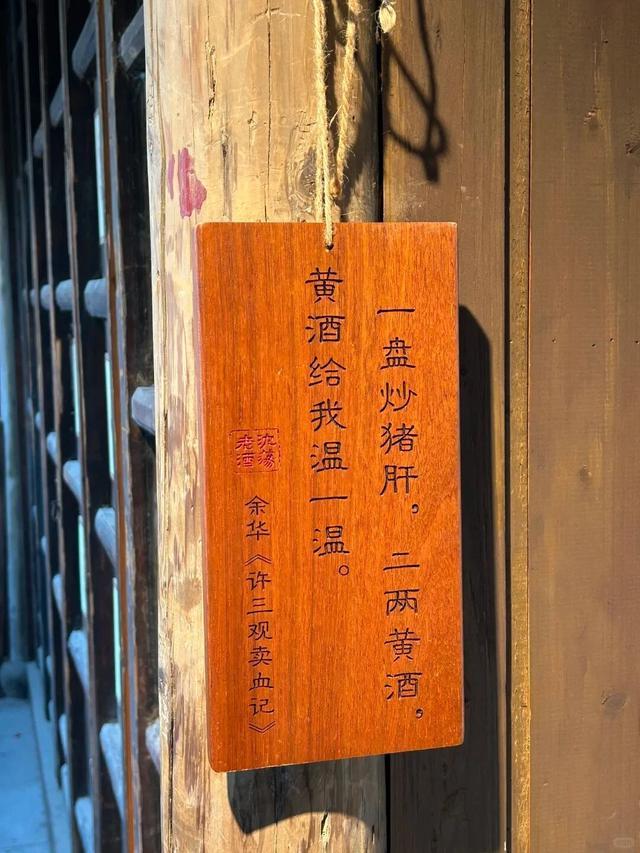 一盘炒猪肝，二两黄酒，
黄酒给我温一温。
余华《许三观卖血记》